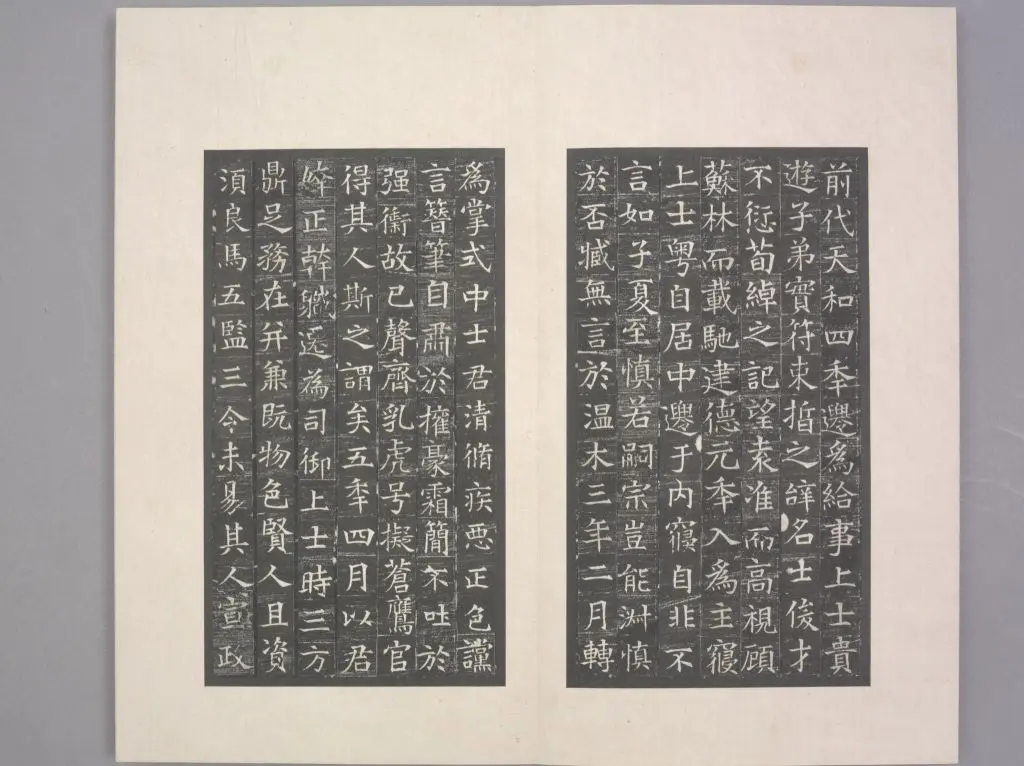 前代天和四秊遷爲給事上士貴
遊子弟實符束晳之辭名士俊才
不愆荀綽之記望袁准而高視顧
蘇林而載馳建德元秊入爲主寑
上士粤自居中遷于內寑自非不
言如子夏至慎若嗣宗豈能淋慎
於否臧無言於温木三年二月轉
爲掌式中士君清脩疾惡正色讜
言簪筆自肅於權豪霜簡不吐於
强衞故已聲齊乳虎号擬蒼鷹官
得其人斯之謂矣五秊四月以君
婞正幹軄遷爲司御上士時三方
鼎足務在并兼既物色賢人且資
須良馬五監三令未易其人宣政